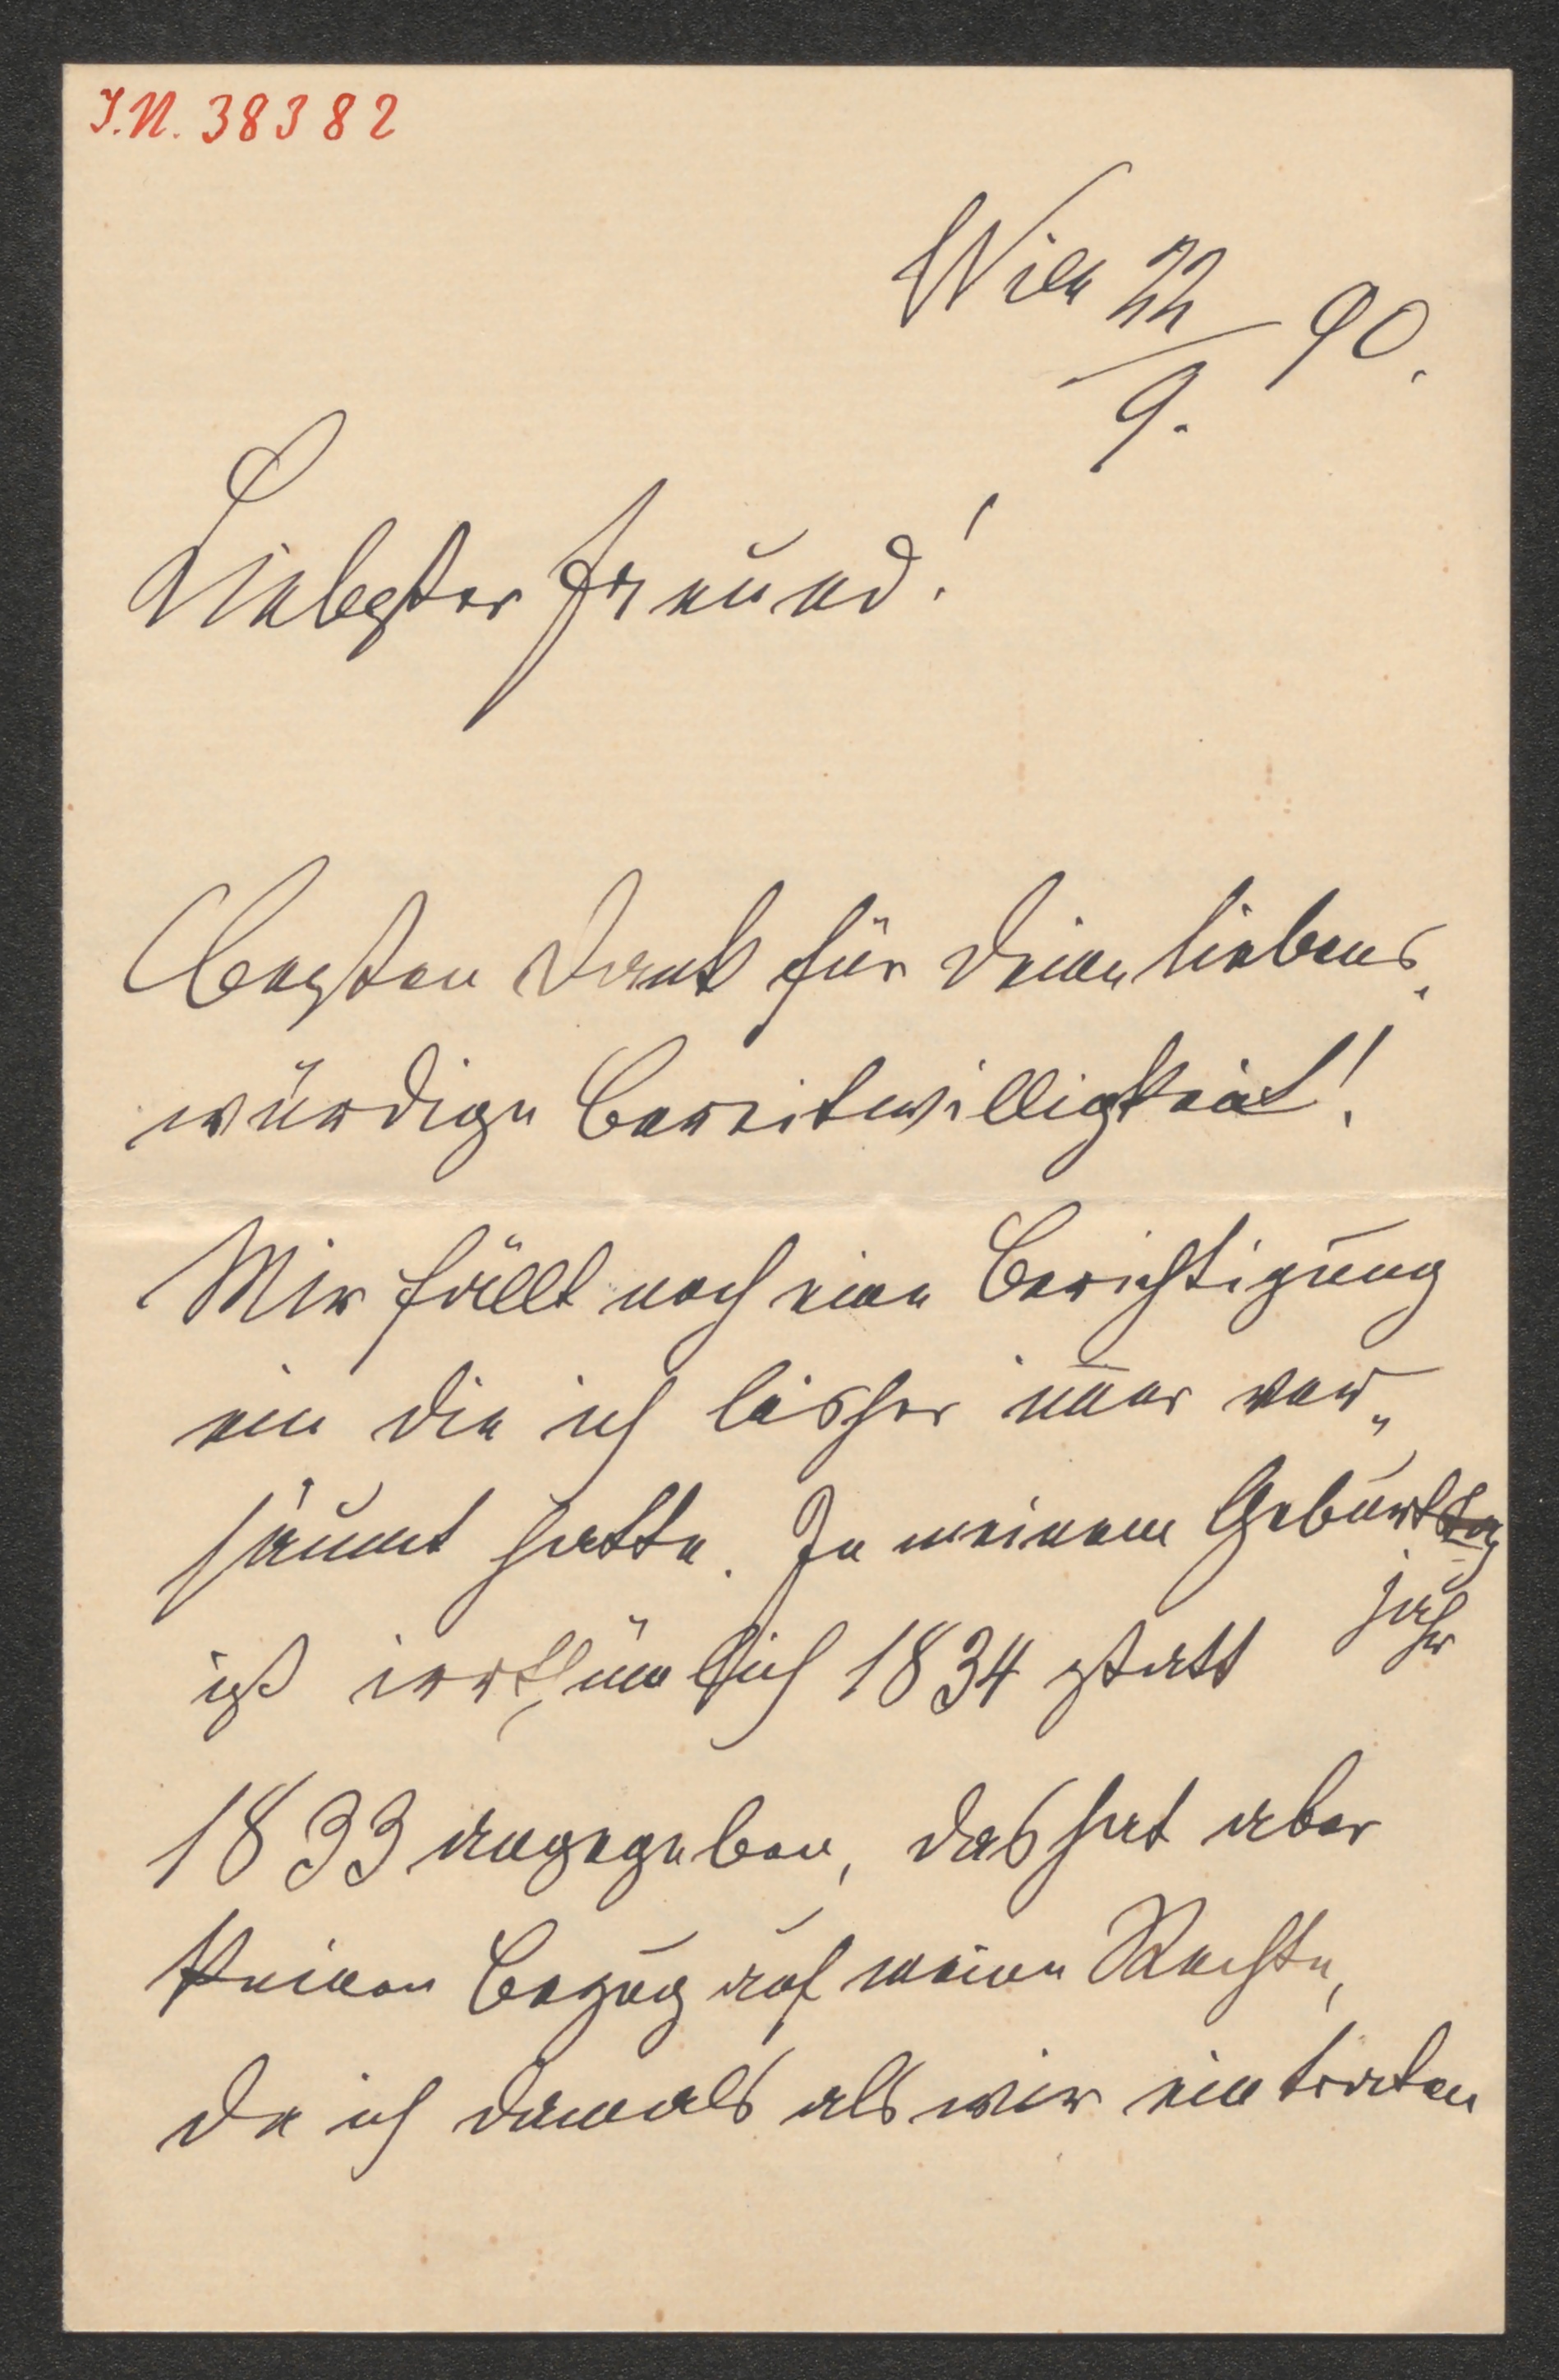 I.N. 38382
Wien 22/9. 90.
Liebster Freund!
Besten Dank für Deine liebens-
würdige Bereitwilligkeit!
Mir fällt noch eine Berichtigung
ein die ich bisher im̅er ver„
säumt hatte. In meinem Geburtstag
jahr
ist irrthümlich 1834 statt
1833 angegeben, das hat aber
keinen Bezug auf meine Rechte,
da ich damals als wir eintraten